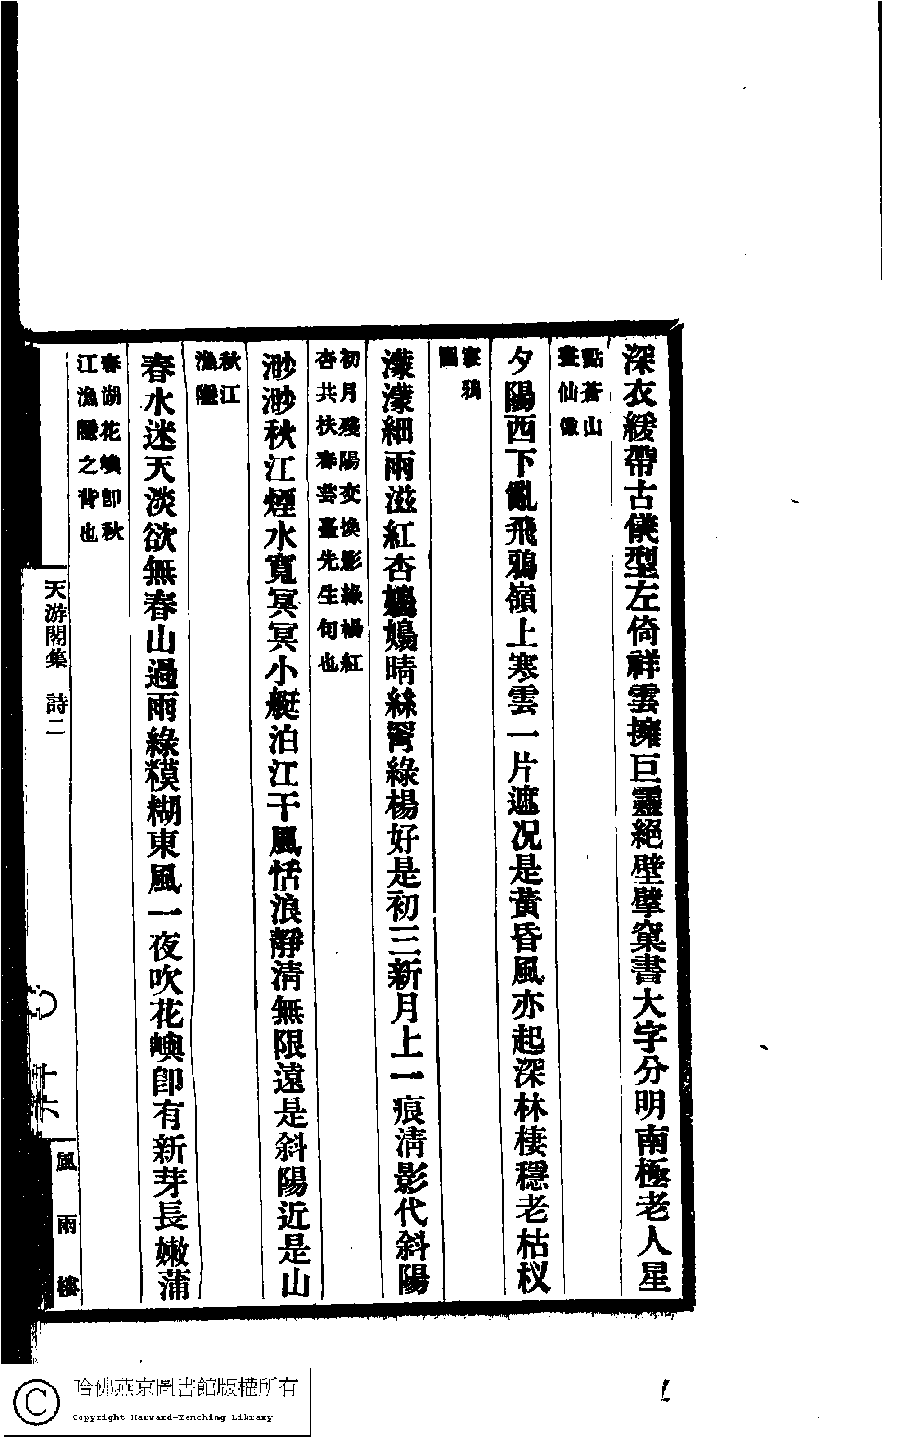 深衣緩帶古儀型左倚祥雲擁巨靈絕壁擘窠書大字分明南極老人星
點蒼山
畫仙像
夕陽西下亂飛鴉嶺上寒雲一片遮況是黃昏風亦起深林棲穩老枯杈
寒鴉
圖
濛濛細雨滋紅杏嫋嫋晴絲罥綠楊好是初三新月上一痕淸影代斜陽
初月殘陽交換影綠楊紅
杏共扶春芸臺先生句也
渺渺秋江煙水寬冥冥小艇泊江干風恬浪靜淸無限遠是斜陽近是山
秋江
漁隱
春水迷天淡欲無春山過雨綠糢糊東風一夜吹花嶼卽有新芽長嫩蒲
春湖花嶼卽秋
江漁隱之背也
天游閣集 詩二
風雨樓
哈佛燕京圖書館版權所有
Copyright Harvard-Yenching Library